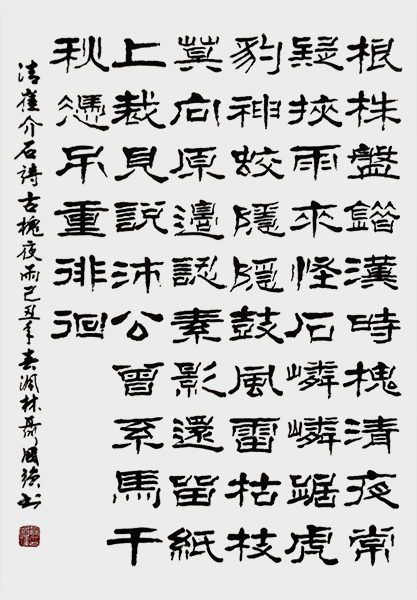 根株盤錯漢時槐清夜常
疑挾雨來怪石嶙嶙踞虎
豹神蛟隱隱鼓風雷枯枝
莫向原邊認素影還留紙
上裁見說沛公曾系馬千
秋憑吊重徘徊
清崔介石詩古槐夜雨己丑年春林聶國強书